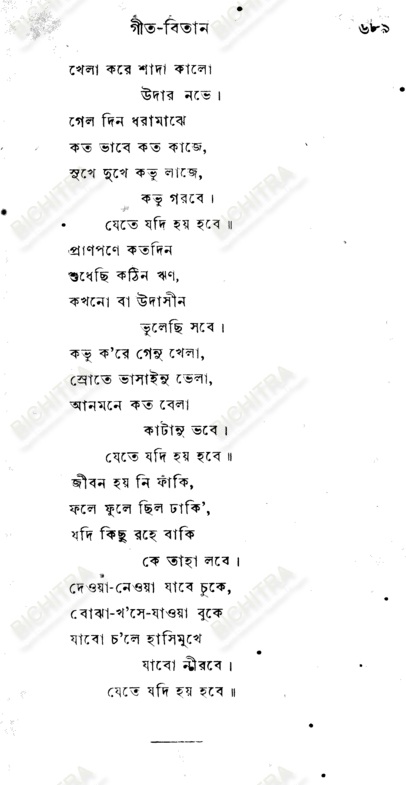 গীত-বিতান ৬৮৯
খেলা করে শাদা কালো
উদার নভে।
গেল দিন ধরামাঝে
কত ভাবে কত কাজে,
সুখে দুখে কভু লাজে,
কভু গরবে।
যেতে যদি হয় হবে॥
প্রাণপণে কতদিন
শুধেছি কঠিন ঋণ,
কখনো বা উদাসীন
ভুলেছি সবে।
কভু ক'রে গেনু খেলা,
স্রোতে ভাসাইনু ভেলা,
আনমনে কত বেলা
কাটানু ভবে।
যেতে যদি হয় হবে॥
জীবন হয় নি ফাঁকি,
ফলে ফুলে ছিল ঢাকি',
যদি কিছু রহে বাকি
কে তাহা লবে।
দেওয়া-নেওয়া যাবে চুকে,
বোঝা-খ'সে-যাওয়া বুকে
যাবো চ'লে হাসিমুখে
যাবো নীরবে।
যেতে যদি হয় হবে॥
BICHITRA
BICHITRA
BICHITRA
BICHITRA
BICHITRA
BICHITRA
BICHITRA
BICHITRA